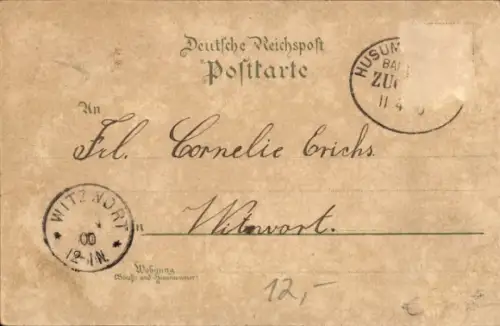 Deutsche Reichspost
Postkarte
HUSUM
BA
ZUG
11 4
An
Frl. Cornelie Erichs
WITZWORT
00
12-1N.
in
Witzwort.
Wohnung
(Straße und Hausnummer)
12,-
€